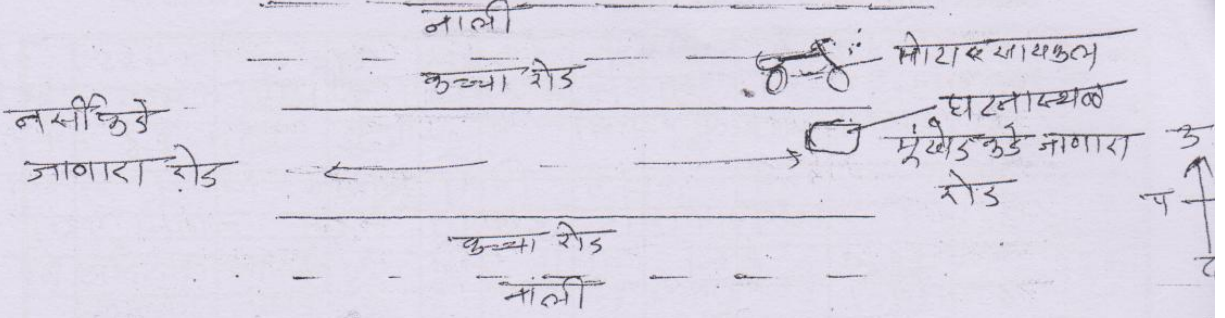 नाली
कच्चा रोड
मोटार सायकल
घटनास्थळ
नर्सीकडे
जाणारा रोड
मुखेड कडे जाणारा
रोड
उ
प
कच्चा रोड
नाली